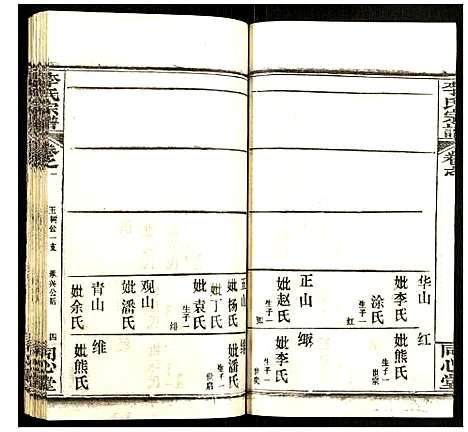 李氏宗譜
卷之
同心堂
华山
妣李氏
涂氏
生子一
红
正山
妣赵氏
生子一
红
妣熊氏
生子一
世宗
缬
妣李氏
生子一
李氏宗譜
卷之一
玉树公一支
振兴公后
四
同心堂
妣杨氏
妣丁氏
妣袁氏
生子一
观山
妣潘氏
青山
妣余氏
妣潘氏
生子一
世启
维
妣熊氏